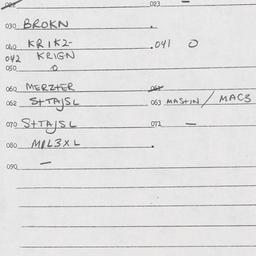 023 —
030 BROKN
040 KRIK2- .041 O
042 KRIGN
050 O
060 MERZTER
062 STTAJSL 063 MASTIN / MAC3
070 STTAJSL 072 —
080 MIL3XL
090 —